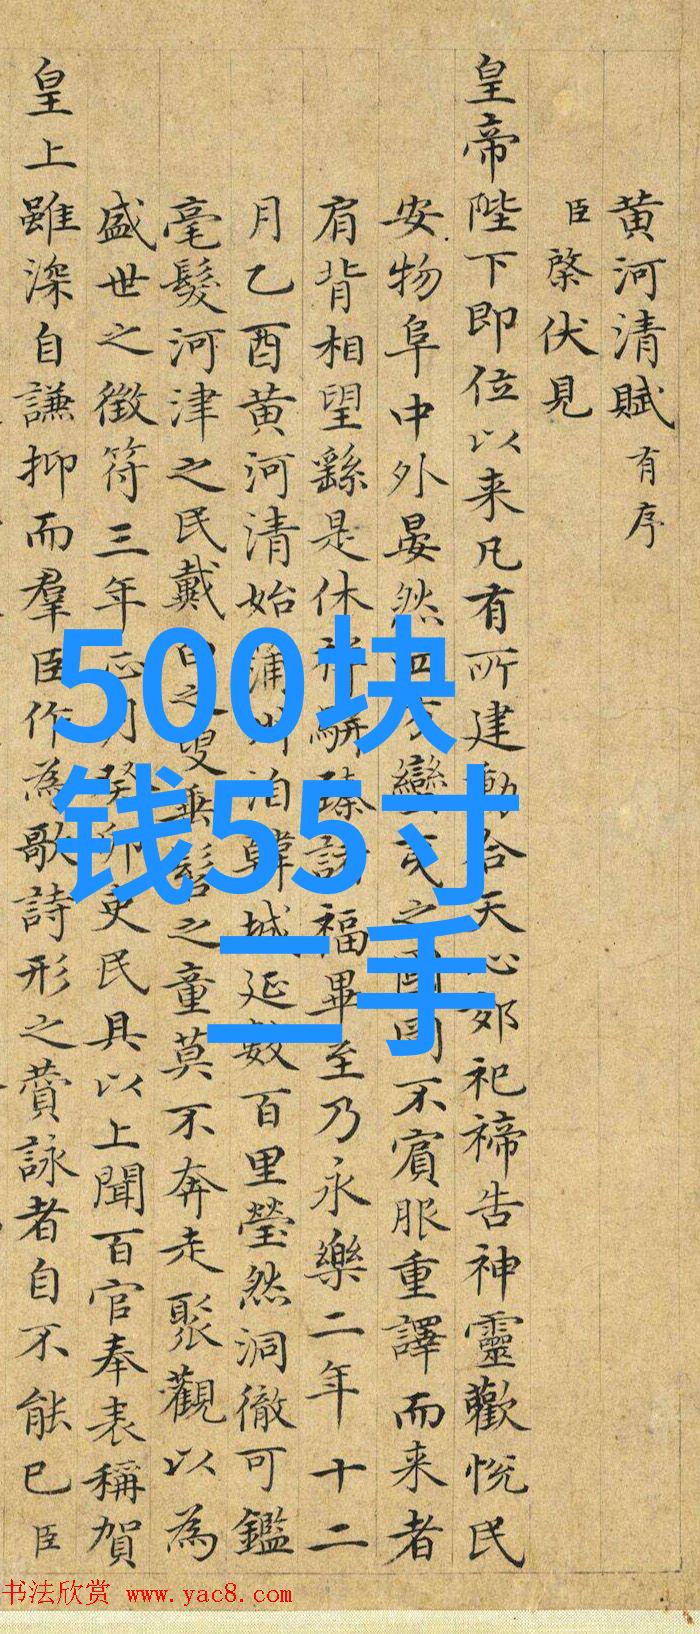 黄河清賦有序
臣棨伏見
皇帝陛下即位以来凡有所建動合天心郊祀禘告神靈歡悅民
安物阜中外晏然四方蠻夷之國罔不賓服重譯而来者
肩背相望繇是休祥駢臻諸福畢至乃永樂二年十二
月乙酉黄河清始蒲州泊韓城延數百里瑩然洞徹可鑑
毫髮河津之民戴白之叟垂髫之童莫不奔走聚觀以為
盛世之徵符三年正月癸卯吏民具以上聞百官奉表稱賀
皇上雖深自謙抑而羣臣作為歌詩形之賛詠者自不能已臣
500块
钱55寸
二手
书法欣赏 www.yac8.com